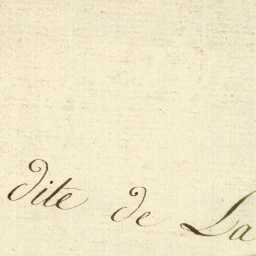 dite de La